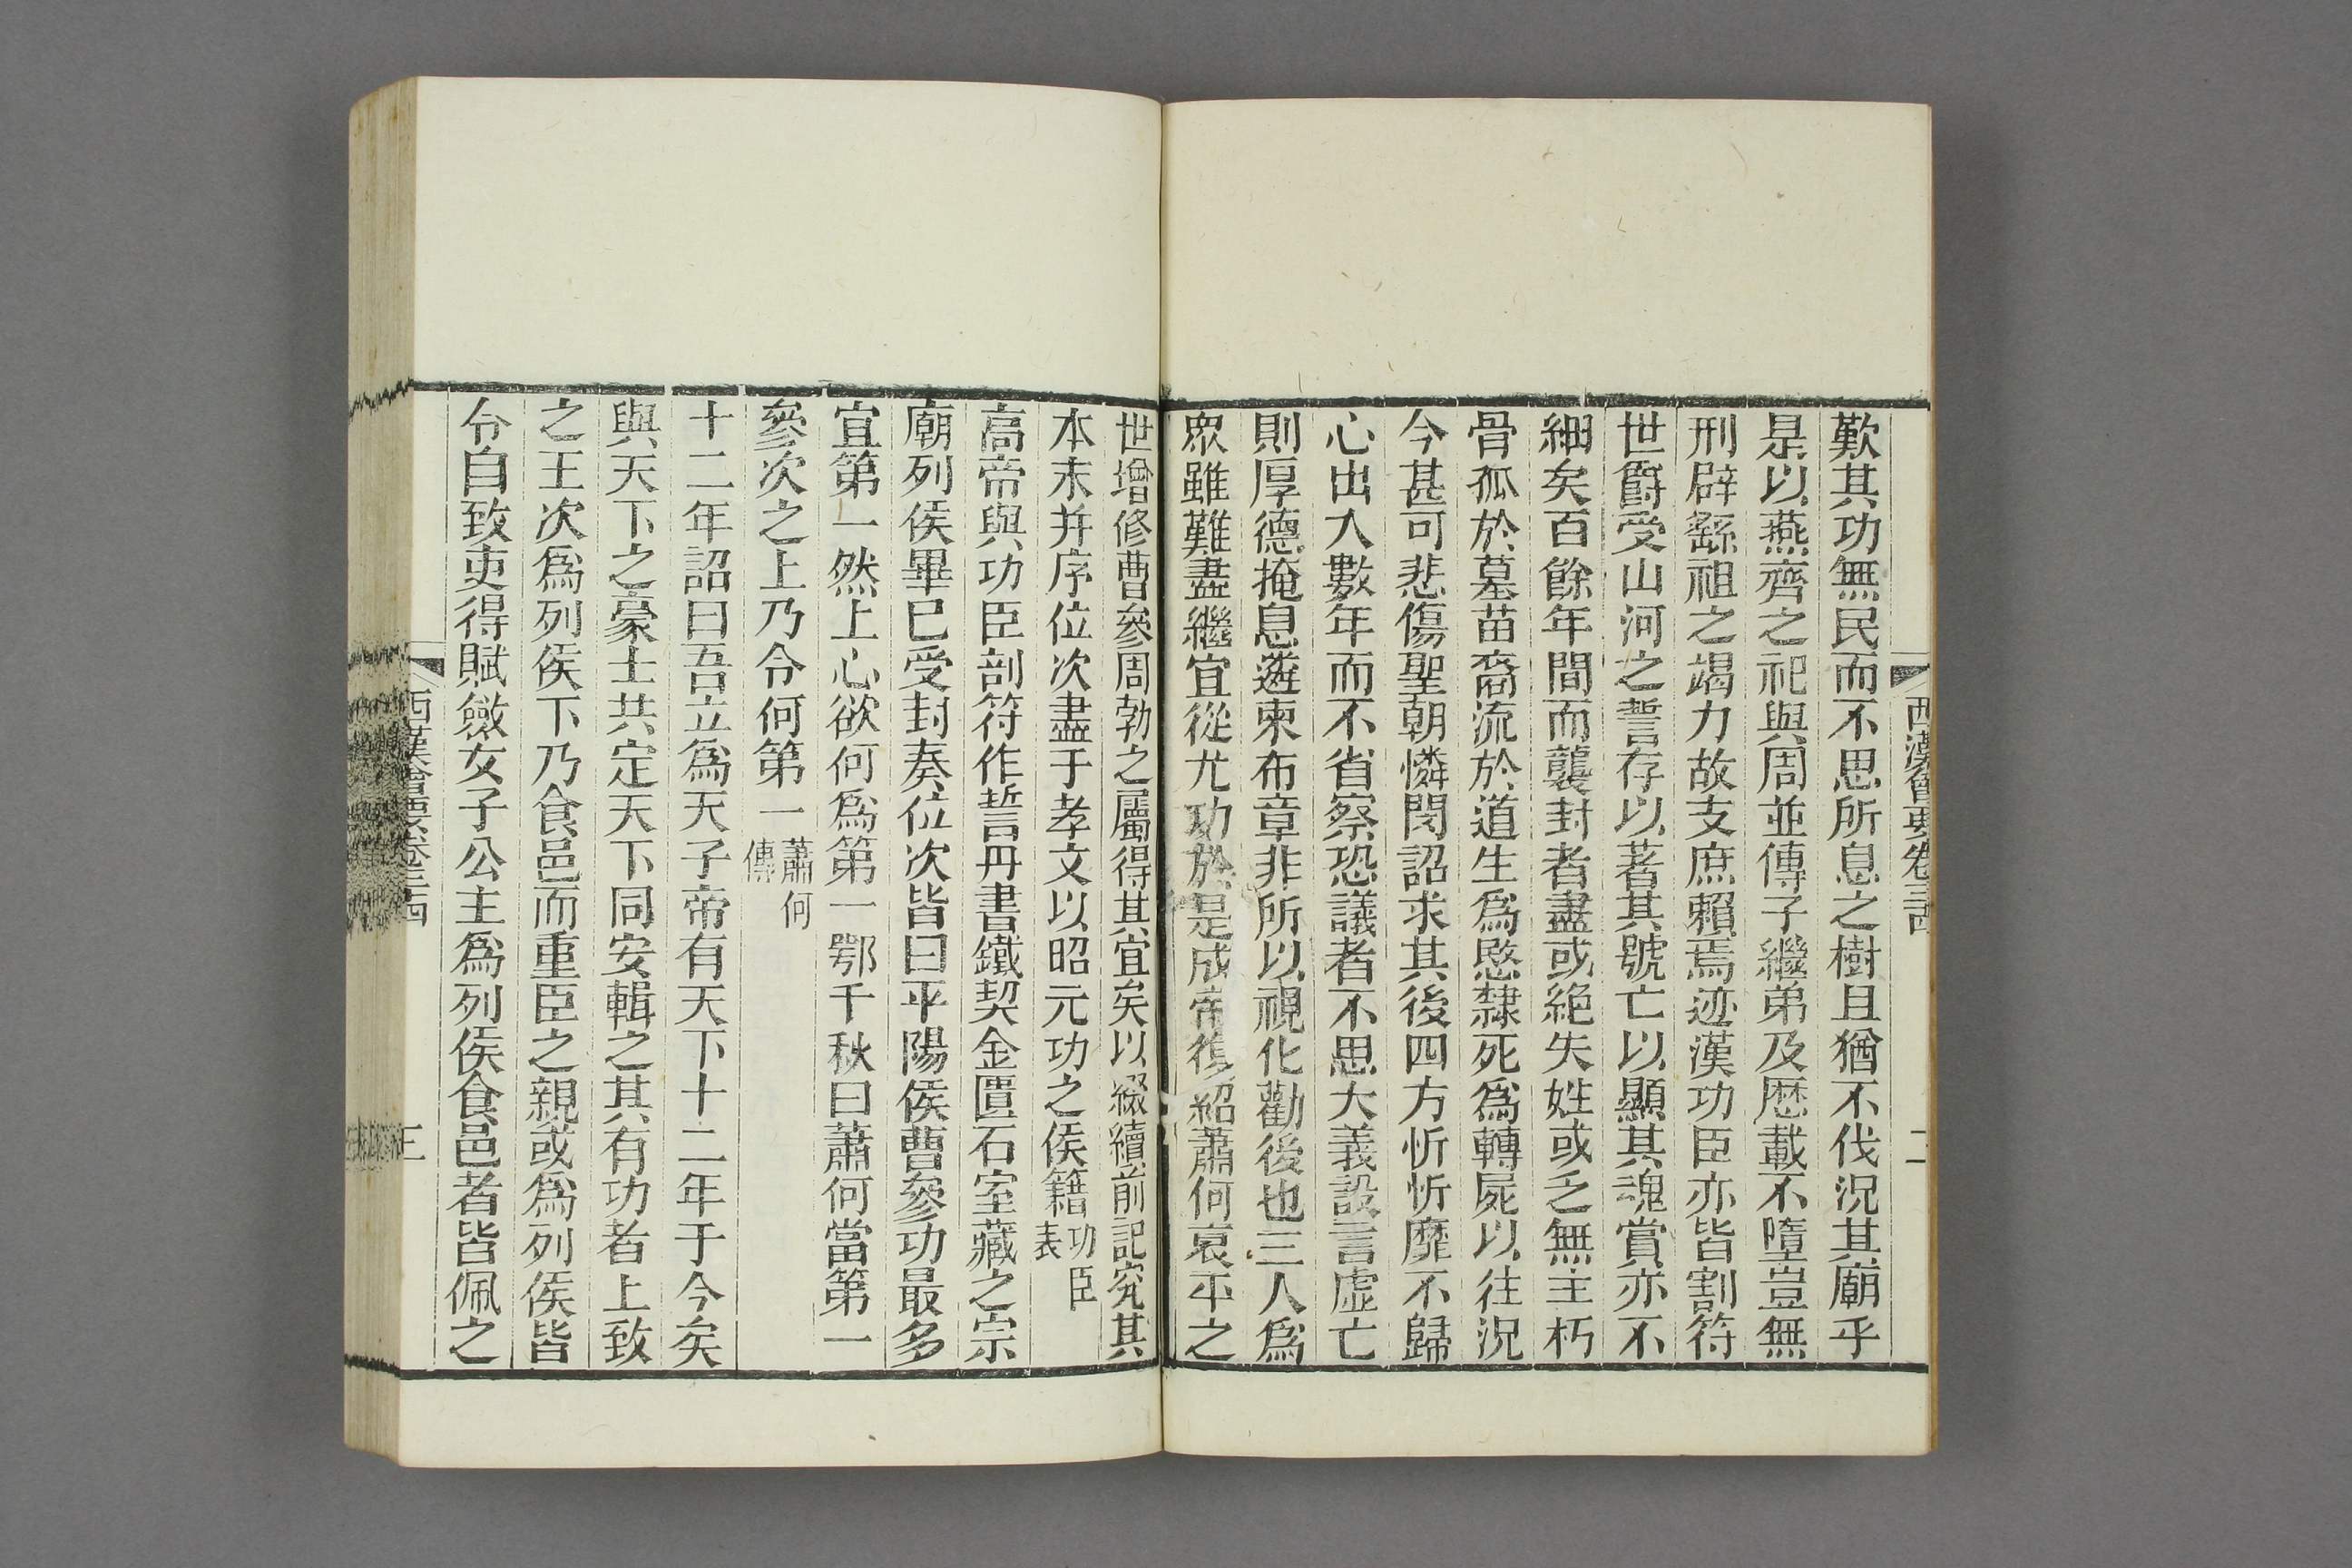 西漢會要卷三十四
二
歎其功無民而不思所息之樹且猶不伐況其廟乎
是以燕齊之祀與周並傳子繼弟及歷載不墮豈無
刑辟繇祖之竭力故支庶賴焉迹漢功臣亦皆割符
世爵受山河之誓存以著其號亡以顯其魂賞亦不
細矣百餘年間而襲封者盡或絕失姓或乏無主朽
骨孤於墓苗裔流於道生爲愍隸死爲轉屍以往況
今甚可悲傷聖朝憐閔詔求其後四方忻忻靡不歸
心出入數年而不省察恐議者不思大義設言虛亡
則厚德掩息遴柬布章非所以視化勸後也三人爲
眾雖難盡繼宜從尤功於是成帝復紹蕭何哀平之
世增修曹參周勃之屬得其宜矣以綴續前記究其
本末并序位次盡于孝文以昭元功之侯籍功臣表
高帝與功臣剖符作誓丹書鐵契金匱石室藏之宗
廟列侯畢已受封奏位次皆曰平陽侯曹參功最多
宜第一然上心欲何爲第一鄂千秋曰蕭何當第一
參次之上乃令何第一蕭何傳
十二年詔曰吾立爲天子帝有天下十二年于今矣
與天下之豪士共定天下同安輯之其有功者上致
之王次爲列侯下乃食邑而重臣之親或爲列侯皆
令自致吏得賦斂女子公主爲列侯食邑者皆佩之
西漢會要卷三十四
三